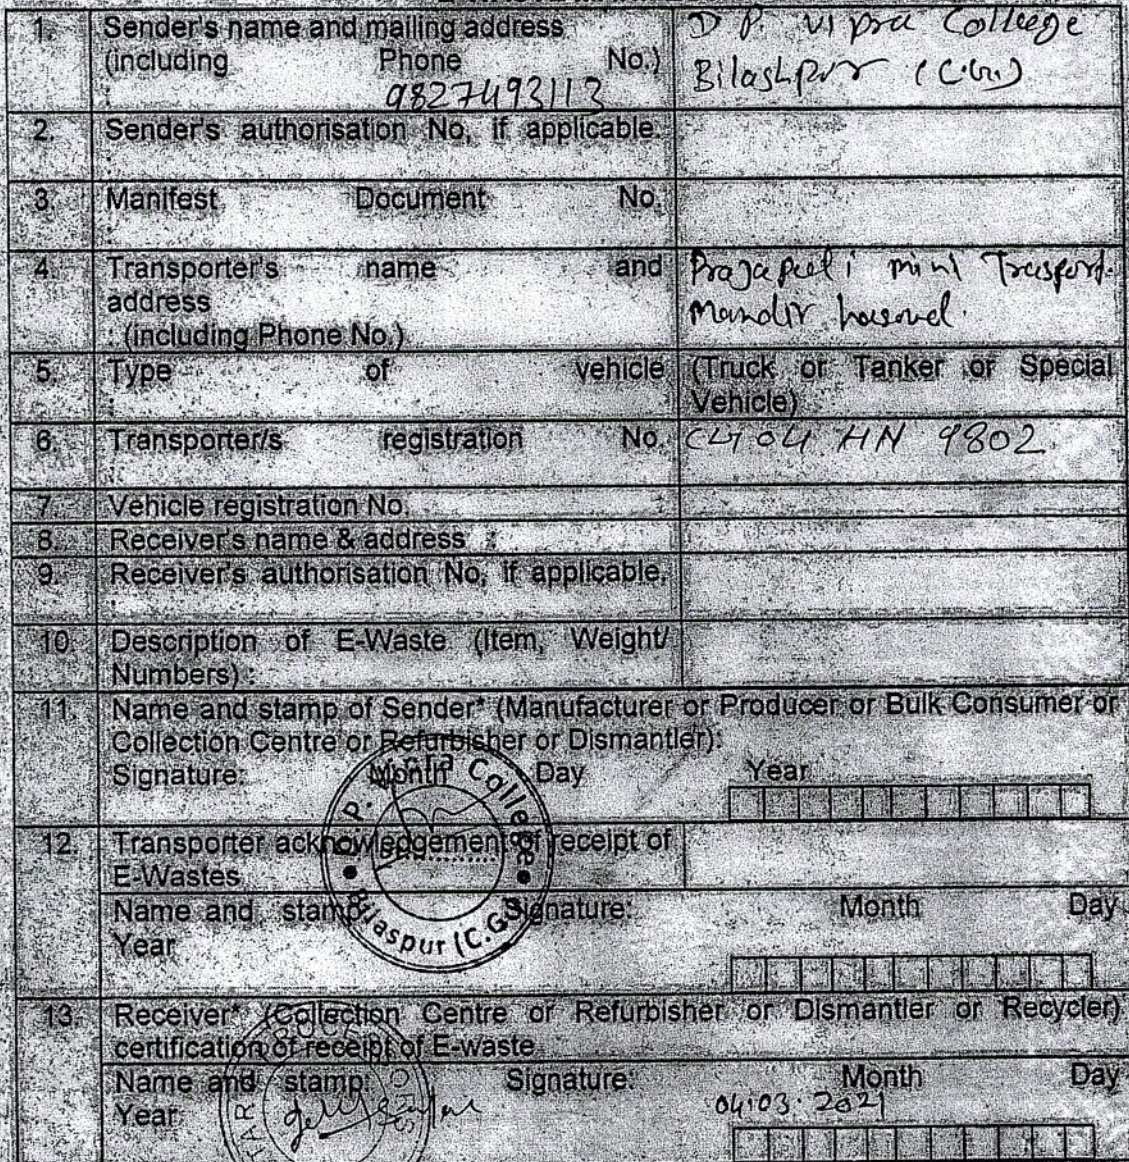 1. Sender's name and mailing address
(including Phone No.)
: 9827493113
D P. Vipra Colleege
Bilashpur (C.G.)
2. Sender's authorisation No, if applicable.
:
3. Manifest Document No.
:
4. Transporter's name and
address
: (including Phone No.)
Prajapeeti mini Trasport.
Mandir hasoud.
5. Type of vehicle
:
(Truck or Tanker or Special
Vehicle)
6. Transporter/s registration No.
:
CG 04 HN 9802
7. Vehicle registration No. :
8. Receiver's name & address :
9. Receiver's authorisation No, if applicable.
:
10. Description of E-Waste (Item, Weight/
Numbers) :
11. Name and stamp of Sender* (Manufacturer or Producer or Bulk Consumer or
Collection Centre or Refurbisher or Dismantler):
Signature: Month Day Year
D.P. Vipra College
Bilaspur (C.G.)
12. Transporter acknowledgement of receipt of
E-Wastes
Name and stamp: Signature: Month Day
Year
13. Receiver* (Collection Centre or Refurbisher or Dismantler or Recycler)
certification of receipt of E-waste
Name and stamp: Signature: Month Day
Year 04.03.2021